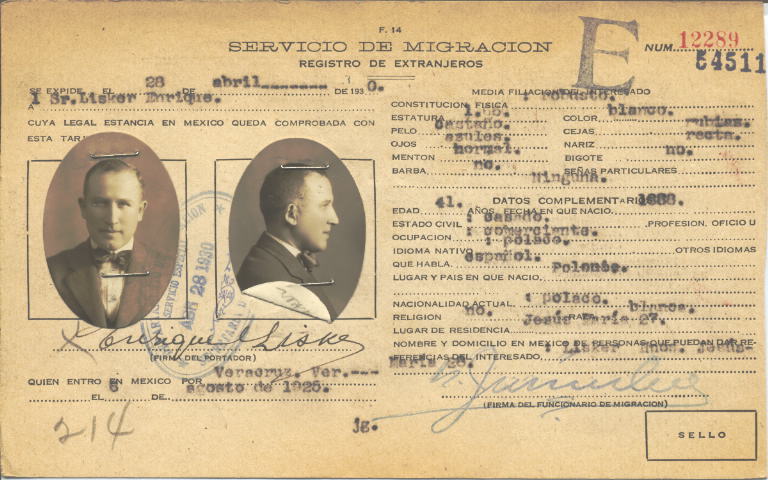 F. 14
SERVICIO DE MIGRACION
REGISTRO DE EXTRANJEROS
E
NUM. 12289
54511
SE EXPIDE EL 28 DE abril DE 1930.
A l Sr. Lisker Enrique.
CUYA LEGAL ESTANCIA EN MEXICO QUEDA COMPROBADA CON
ESTA TARJ
ABR 28 1930
Enrique Lisker
(FIRMA DEL PORTADOR)
QUIEN ENTRO EN MEXICO POR Veracruz. Ver.---
EL 6 DE agosto de 1925.
214
jg.
MEDIA FILIACION DEL INTERESADO
CONSTITUCION FISICA : robusto.
ESTATURA 1.66. COLOR blanco.
PELO castaño. CEJAS rubias.
OJOS azules. NARIZ recta.
MENTON normal. BIGOTE no.
BARBA no. SEÑAS PARTICULARES
Ninguna.
DATOS COMPLEMENTARIOS
EDAD 41. AÑOS. FECHA EN QUE NACIO
ESTADO CIVIL : casado. PROFESION, OFICIO U
OCUPACION : comerciante.
IDIOMA NATIVO : polaco. OTROS IDIOMAS
QUE HABLA español.
LUGAR Y PAIS EN QUE NACIO Polonés.
NACIONALIDAD ACTUAL : polaco.
RELIGION no. RAZA blanca.
LUGAR DE RESIDENCIA Jesús María 27.
NOMBRE Y DOMICILIO EN MEXICO DE PERSONAS QUE PUEDAN DAR RE-
FERENCIAS DEL INTERESADO : Lisker Hnos. Jesús-
María 26.
(FIRMA DEL FUNCIONARIO DE MIGRACION)
SELLO